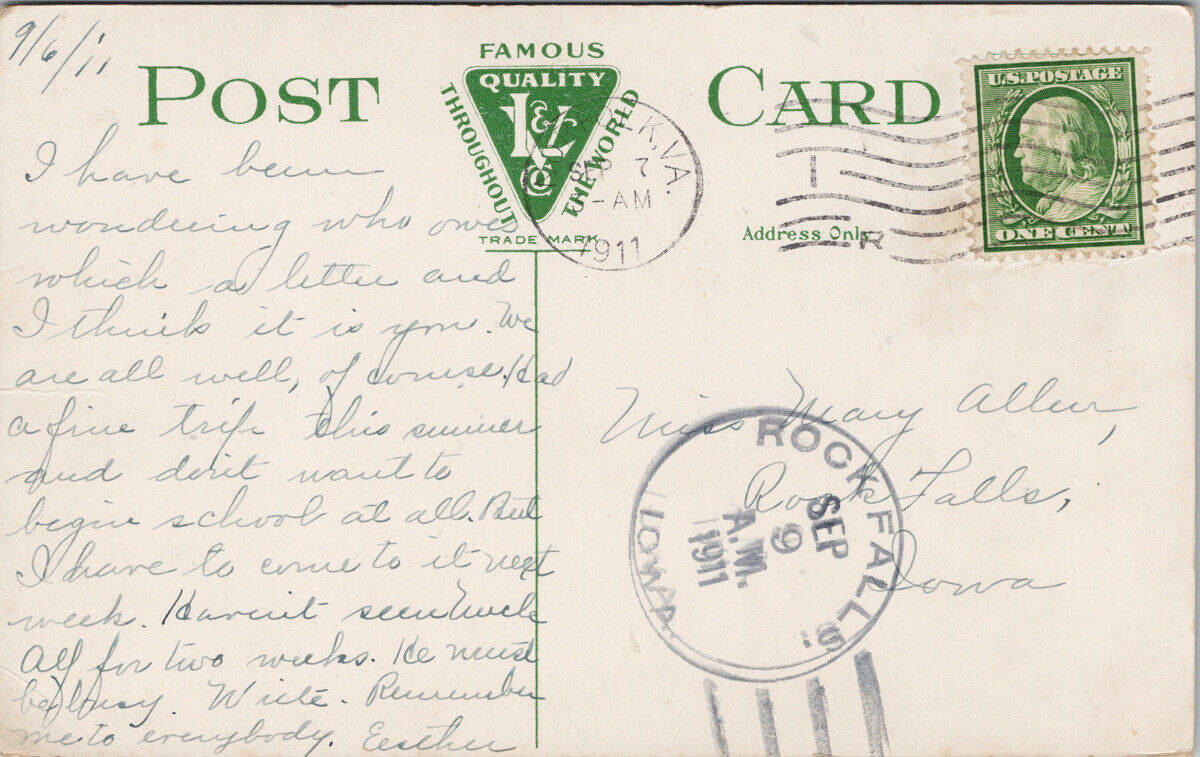 9/6/11
POST CARD
FAMOUS
QUALITY
THROUGHOUT
THE WORLD
& Co
TRADE MARK
K, VA.
SEP 7
-AM
1911
Address Only
R
U.S. POSTAGE
ONE CENT
I have been
wondering who owes
which a letter and
I think it is you. We
are all well, of course. Had
a fine trip this summer
and don't want to
begin school at all. But
I have to come to it next
week. Haven't seen Uncle
Alf for two weeks. He must
be busy. Write. Remember
me to everybody. Eesther
Miss Mary Allen,
Rock Falls,
Iowa
ROCK FALLS.
SEP
9
A.M.
1911
IOWA.